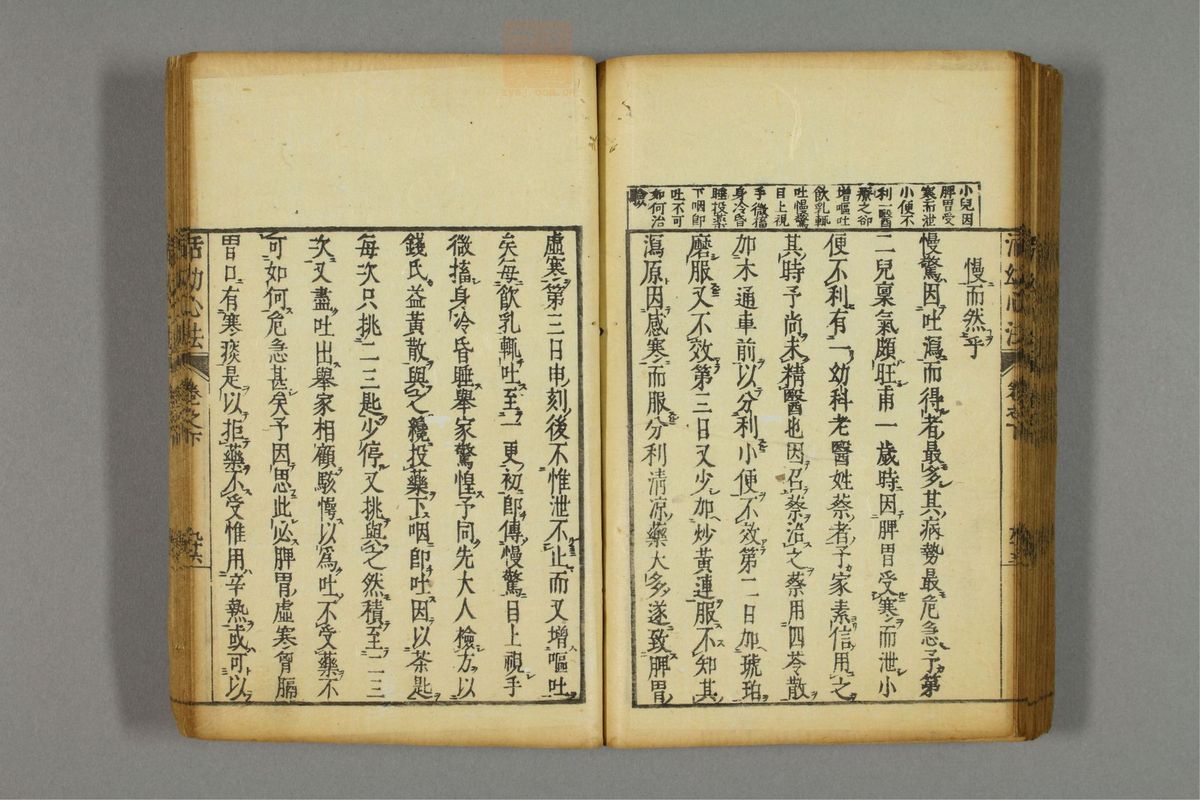 小兒因
脾胃受
寒而泄
小便不
利一醫
療之卻
增嘔吐
飲乳輒
吐慢驚
目上視
手微搐
身冷昏
睡投藥
下咽即
吐不可
如何治
驗
慢而然乎
慢驚因吐瀉而得者最多其病勢最危急予第
二兒稟氣頗旺甫一歲時因脾胃受寒而泄小
便不利有一幼科老醫姓蔡者予家素信用之
其時予尚未精醫也因召蔡治之蔡用四苓散
加木通車前以分利小便不效第二日加琥珀
磨服又不效第三日又少加炒黃連服不知其
瀉原因感寒而服分利清凉藥太多遂致脾胃
虛寒第三日申刻後不惟泄不止而又增嘔吐
矣每飲乳輒吐至一更初即傳慢驚目上視手
微搐身冷昏睡舉家驚惶予同先大人檢方以
錢氏益黃散與之纔投藥下咽即吐因以茶匙
每次只挑二三匙少停又挑與之然積至二三
次又盡吐出舉家相顧駭愕以為吐不受藥不
可如何危急甚矣予因思此必脾胃虛寒胷膈
胃口有寒痰是以拒藥不受惟用辛熱或可以
活幼心法
卷之下
九十六